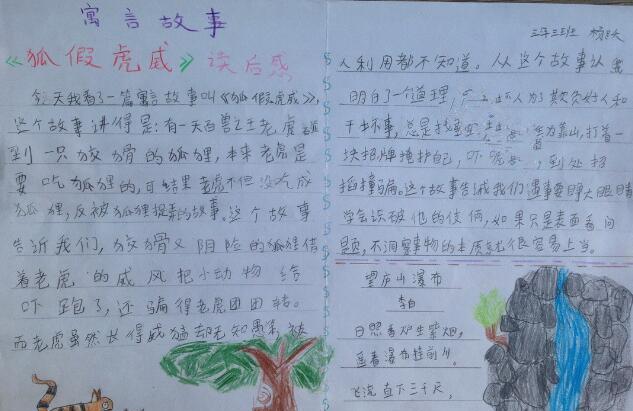 寓言故事
《狐假虎威》读后感
今天我看了一篇寓言故事叫《狐假虎威》,
这个故事讲得是:有一天百兽之王老虎碰
到一只狡猾的狐狸,本来老虎是
要吃狐狸的,可结果老虎不但没吃成
狐狸,反被狐狸捉弄的故事。这个故事
告诉我们,狡猾又阴险的狐狸借
着老虎的威风把小动物给
吓跑了,还骗得老虎团团转。
而老虎虽然长得威猛却无知愚笨,被
三年三班
人利用都不知道。从这个故事认我
明白了一个道理,坏人为了欺负好人和
干坏事,总是找为靠山,打着一
块招牌掩护自己,吓到处招
摇撞骗。这个故事告诫我们遇事要睁大眼睛
学会识破他的伎俩,如果只是表面看问
题,不洞察事物的本质就很容易上当。
望庐山瀑布
李白
日照香炉生紫烟,
遥看瀑布挂前川。
飞流直下三千尺,